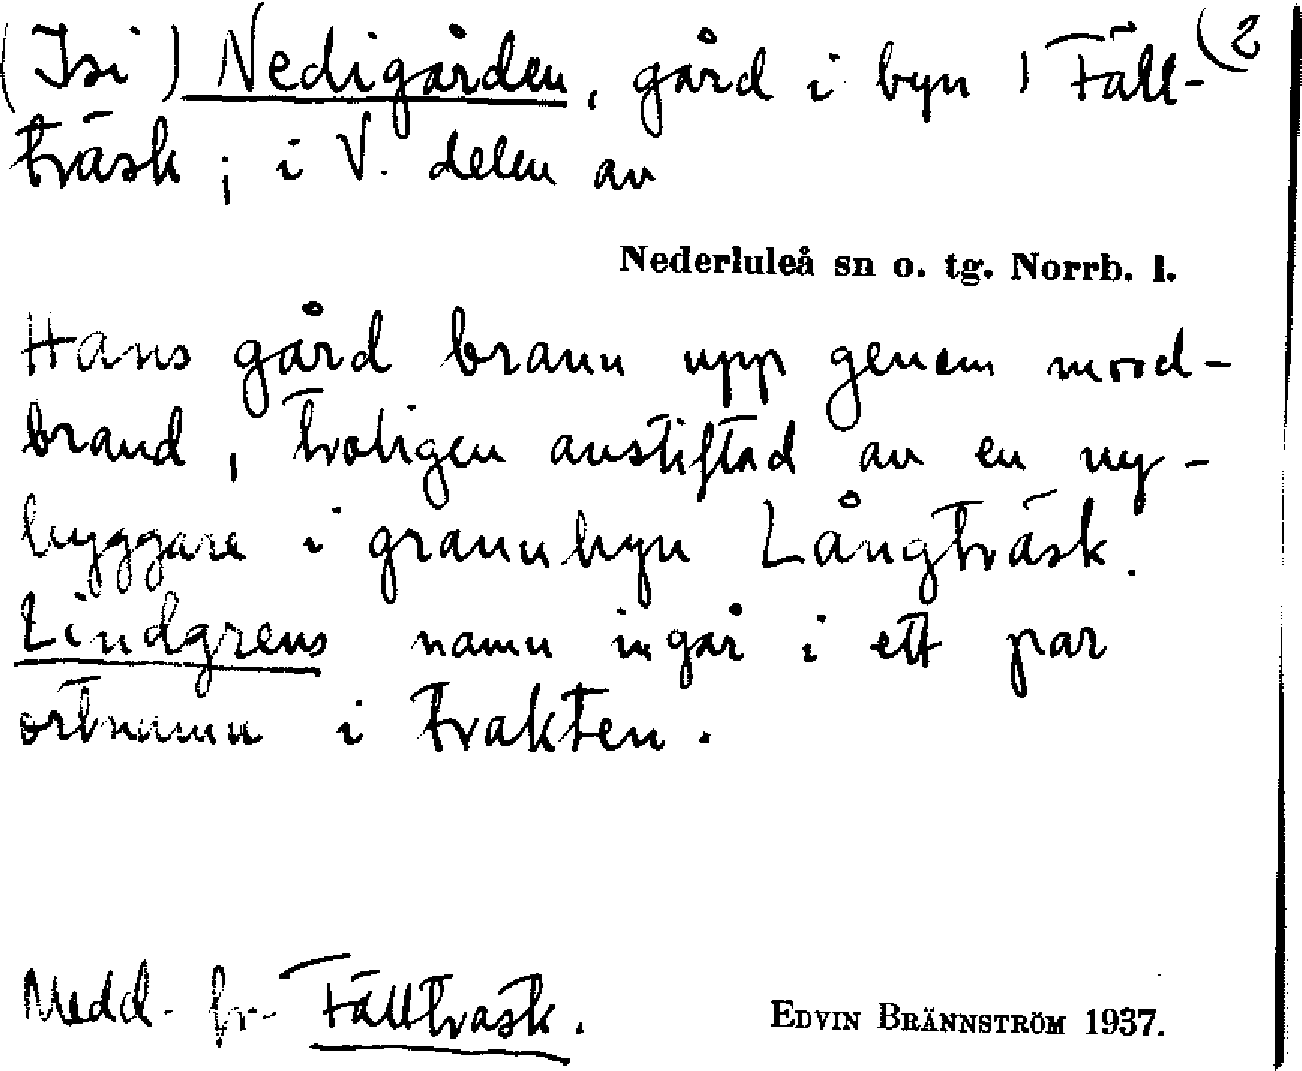 (Isi) Nedigården, gård i byn Fäll- (2
träsk; i V. delen av
Nederluleå sn o. tg. Norrb. l.
Hans gård brann upp genom mord-
brand, troligen anstiftad av en ny-
byggare i grannbyn Långträsk.
Lindgrens namn ingår i ett par
ortnamn i trakten.
Medd. fr. Fällträsk.
EDVIN BRÄNNSTRÖM 1937.